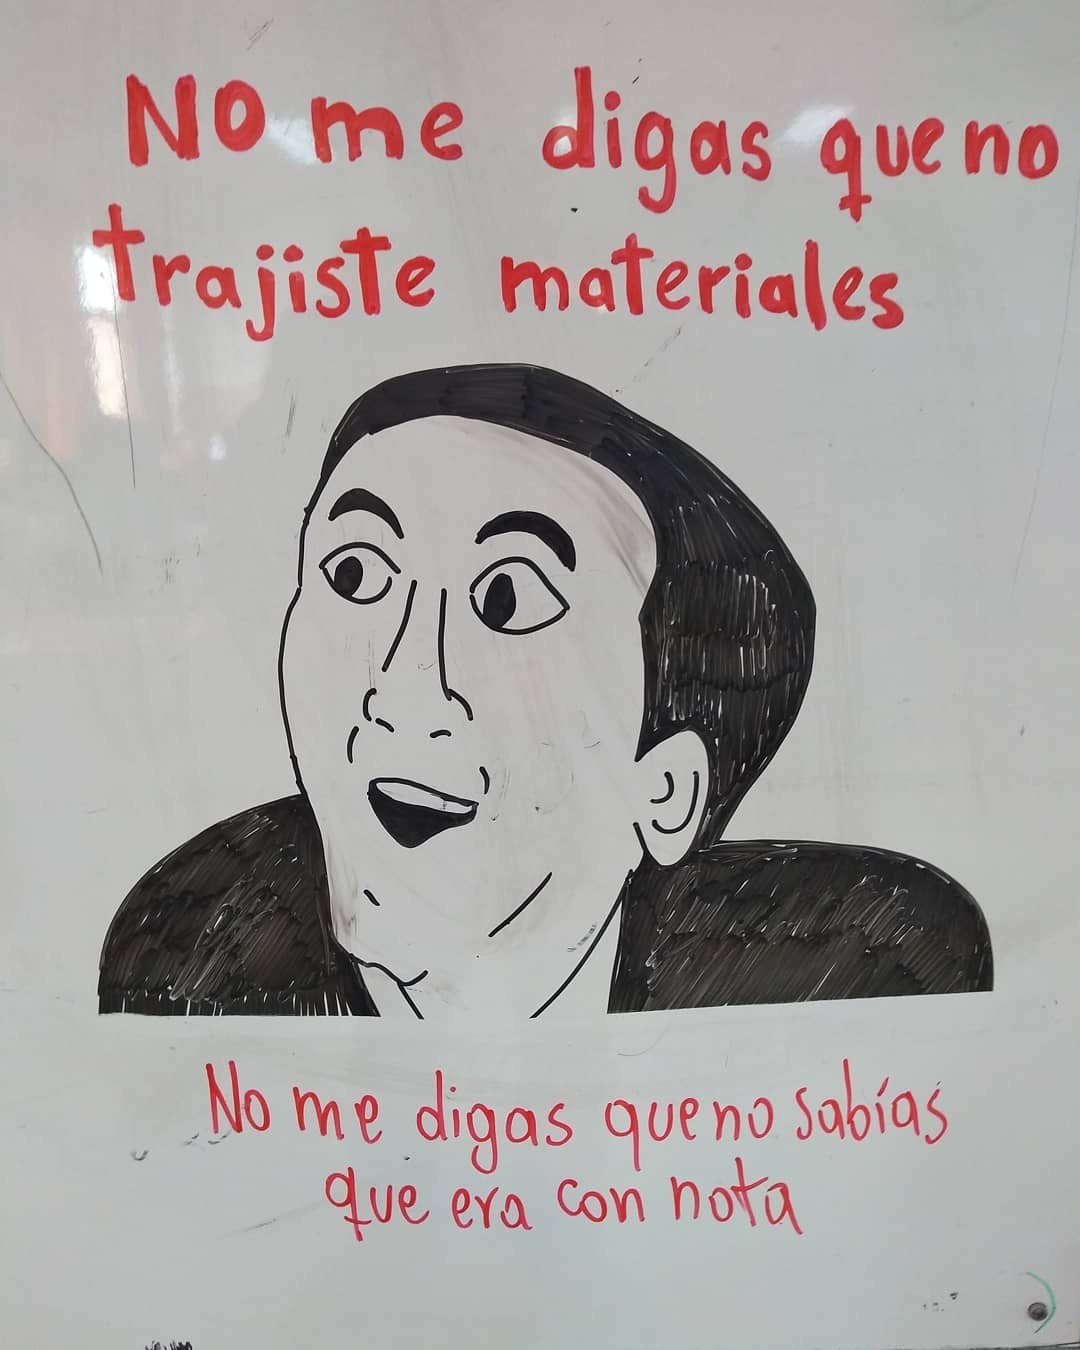 No me digas que no
trajiste materiales
No me digas que no sabías
que era con nota